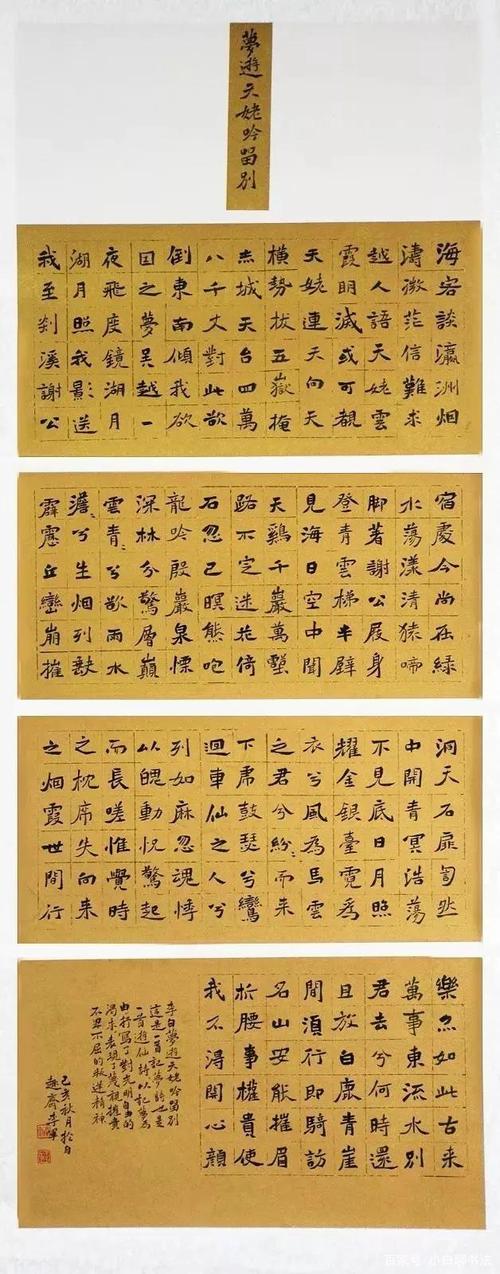 夢遊天姥吟留別
海客談瀛洲烟
濤微茫信難求
越人語天姥雲
霞明滅或可覩
天姥連天向天
橫勢拔五嶽掩
赤城天台四萬
八千丈對此欲
倒東南傾我欲
因之夢吳越一
夜飛度鏡湖月
湖月照我影送
我至剡溪謝公
宿處今尚在綠
水蕩漾清猿啼
脚著謝公屐身
登青雲梯半壁
見海日空中聞
天鷄千巖萬壑
路不定迷花倚
石忽已暝熊咆
龍吟殷巖泉慄
深林兮驚層巔
雲青々兮欲雨水
澹々兮生烟列缺
霹靂丘巒崩摧
洞天石扉訇然
中開青冥浩蕩
不見底日月照
耀金銀臺霓為
衣兮風為馬雲
之君兮紛々而來
下虎鼓瑟兮鸞
迴車仙之人兮
列如麻忽魂悸
以魄動怳驚起
而長嗟惟覺時
之枕席失向來
之烟霞世間行
樂亦如此古來
萬事東流水別
君去兮何時還
且放白鹿青崖
間須行即騎訪
名山安能摧眉
折腰事權貴使
我不得開心顏
李白夢遊天姥吟留別
這是一首記夢詩也是
一首遊仙詩以記夢為
由抒寫了對光明自由的
渴求表現了蔑視權貴
不卑不屈的叛逆精神
己亥秋月松白
齋李軍
百家号/小白聊书法